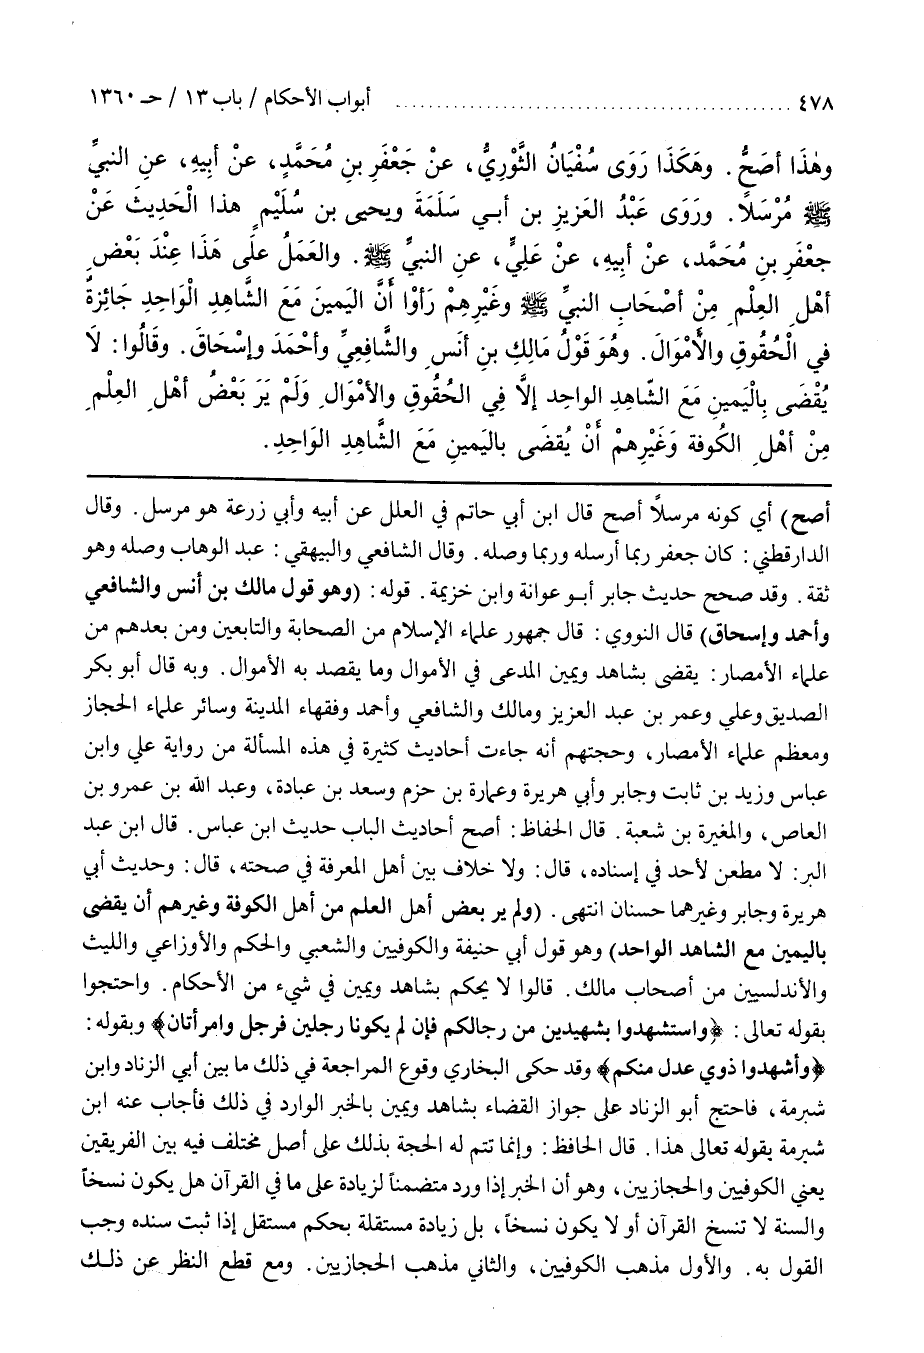 ٤٧٨ ............................................ أبواب الأحكام / باب ١٣ / حـ ١٣٦٠
وهٰذَا أصَحُّ. وهَكَذَا رَوَى سُفْيَانُ الثَّوْرِيُّ، عنْ جَعْفَرِ بنِ مُحَمَّدٍ، عنْ أبِيهِ، عنِ النبيِّ
ﷺ مُرْسَلًا. ورَوَى عَبْدُ العَزيزِ بن أبـي سَلَمَةَ ويحيى بن سُلَيْمٍ هذا الْحَدِيثَ عَنْ
جعْفَرِ بنِ مُحَمَّد، عنْ أبيهِ، عنْ عَلِيٍّ، عنِ النبيِّ ﷺ. والعَمَلُ علَى هَذَا عِنْدَ بَعْضِ
أهْلِ العِلْمِ مِنْ أصْحَابِ النبيِّ ﷺ وغَيْرِهِمْ رَأوْا أَنَّ اليَمينَ مَعَ الشَّاهِدِ الْوَاحِدِ جَائِزةٌ
في الْحُقُوقِ والْأَمْوَالَ. وهُوَ قَوْلُ مَالِكِ بنِ أنَسٍ والشَّافِعِيِّ وأحْمَدَ وإسْحَاقَ. وقَالُوا: لَا
يُقْضَى بِالْيَمينِ مَعَ الشّاهِدِ الواحد إلاَّ فِي الحُقُوقِ والأمْوَالِ وَلَمْ يَرَ بَعْضُ أهْلِ العِلْمِ
مِنْ أهْلِ الكُوفة وَغَيْرِهمْ أَنْ يُقضَى باليَمينِ مَعَ الشَّاهِدِ الوَاحِدِ.
أصح) أي كونه مرسلاً أصح قال ابن أبي حاتم في العلل عن أبيه وأبي زرعة هو مرسل. وقال
الدارقطني: كان جعفر ربما أرسله وربما وصله. وقال الشافعي والبيهقي: عبد الوهاب وصله وهو
ثقة. وقد صحح حديث جابر أبـو عوانة وابن خزيمة. قوله: (وهو قول مالك بن أنس والشافعي
وأحمد وإسحاق) قال النووي: قال جمهور علماء الإسلام من الصحابة والتابعين ومن بعدهم من
علماء الأمصار: يقضى بشاهد ويمين المدعى في الأموال وما يقصد به الأموال. وبه قال أبو بكر
الصديق وعلي وعمر بن عبد العزيز ومالك والشافعي وأحمد وفقهاء المدينة وسائر علماء الحجاز
ومعظم علماء الأمصار، وحجتهم أنه جاءت أحاديث كثيرة في هذه المسألة من رواية علي وابن
عباس وزيد بن ثابت وجابر وأبي هريرة وعمارة بن حزم وسعد بن عبادة، وعبد الله بن عمرو بن
العاص، والمغيرة بن شعبة. قال الحفاظ: أصح أحاديث الباب حديث ابن عباس. قال ابن عبد
البر: لا مطعن لأحد في إسناده، قال: ولا خلاف بين أهل المعرفة في صحته، قال: وحديث أبي
هريرة وجابر وغيرهما حسنان انتهى. (ولم ير بعض أهل العلم من أهل الكوفة وغيرهم أن يقضى
باليمين مع الشاهد الواحد) وهو قول أبي حنيفة والكوفيين والشعبي والحكم والأوزاعي والليث
والأندلسيين من أصحاب مالك. قالوا لا يحكم بشاهد ويمين في شيء من الأحكام. واحتجوا
بقوله تعالى: ﴿واستشهدوا بشهيدين من رجالكم فإن لم يكونا رجلين فرجل وامرأتان﴾ وبقوله:
﴿وأشهدوا ذوي عدل منكم﴾ وقد حكى البخاري وقوع المراجعة في ذلك ما بين أبي الزناد وابن
شبرمة، فاحتج أبو الزناد على جواز القضاء بشاهد ويمين بالخبر الوارد في ذلك فأجاب عنه ابن
شبرمة بقوله تعالى هذا. قال الحافظ: وإنما تتم له الحجة بذلك على أصل مختلف فيه بين الفريقين
يعني الكوفيين والحجازيين، وهو أن الخبر إذا ورد متضمناً لزيادة على ما في القرآن هل يكون نسخاً
والسنة لا تنسخ القرآن أو لا يكون نسخاً، بل زيادة مستقلة بحكم مستقل إذا ثبت سنده وجب
القول به. والأول مذهب الكوفيين، والثاني مذهب الحجازيين. ومع قطع النظر عن ذلـك